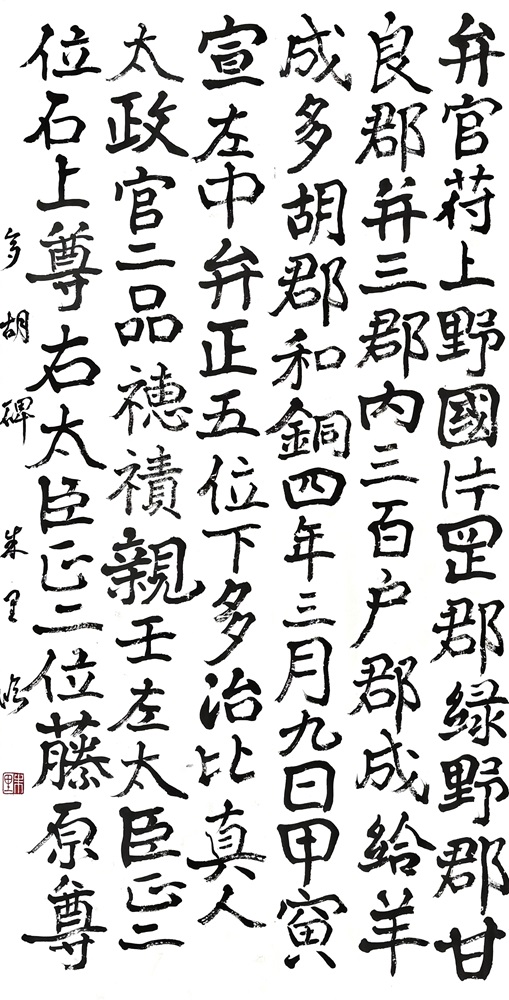 弁官苻上野國片罡郡緑野郡甘
良郡并三郡内三百户郡成給羊
成多胡郡和銅四年三月九日甲寅
宣左中弁正五位下多治比真人
太政官二品穂積親王左太臣正二
位石上尊右太臣正二位藤原尊
多胡碑 朱里临